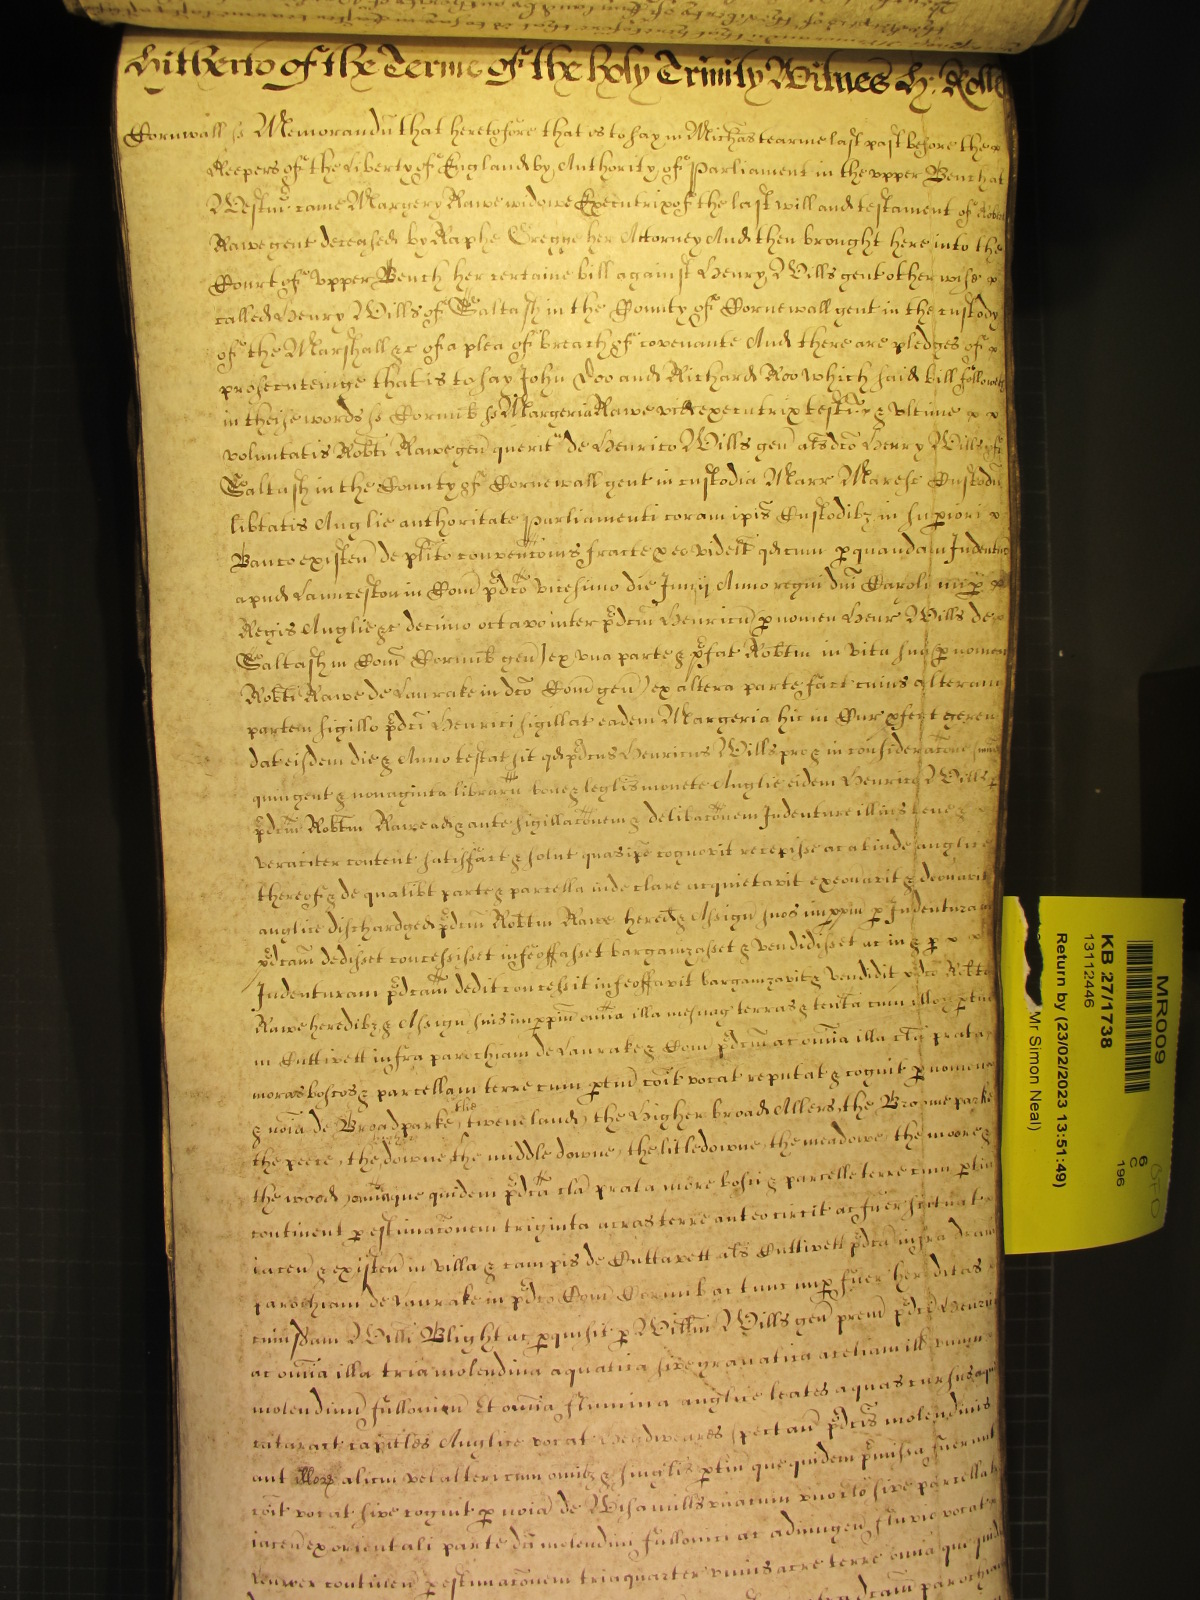 Hitherto of the Terme of the holy Trinity Witnes H: Rolle
Cornwall ss Memorandũ that heretofore that is to say in Mich̃as tearme last past before the
Keepers of the Liberty of England by Authority of Parliament in the vpper Bench at
Westm̃ came Margery Rawe widowe Executrix of the last will and testament of Robert
Rawe gent deceased by Raphe Gregge her Attorney And then brought here into the
Court of Vpper Bench her certaine bill against Henry Wills gent otherwise
called Henry Wills of Saltash in the County of Cornewall gent in the custody
of the Marshall &c of a plea of breach of covenante And there are pledges of
prosecuteinge that is to say John Doo and Richard Roo Which said bill followeth
in theise words ss Cornub̃ ss Margeria Rawe vid executrix testi & vltime
voluntatis Rob̃ti Rawe geñ querit̃ de Henrico Wills geñ al̃s dc̃o Henry Wills of
Saltash in the County of Cornewall gent in custodia Marr Marese Custodũ
lib̃tatis Anglie authoritate Parliamenti coram ip̃is Custodib₃ in sup̱iori
Banco existeñ de pl̃ito convenc̃onis fracte eo videlt̃ qđ cum p̱ quandam Indentur
apud Launceston in Com̃ p̃dc̃o vicesimo die Junij Anno regni dñi Caroli nup̱
Regis Anglie &c decimo octavo inter p̃dc̃m Henricũ p̱ nomen Henr Wills de
Saltash in Com̃ Cornub̃ geñ) ex vna parte & p̃fat Rob̃tm in vita sua p̱ nomen
Rob̃ti Rawe de Lanrake in dc̃o Com̃ geñ) ex altera parte fact cuius alteram
partem sigillo p̃dc̃i Henrici sigillat eadem Margeria hic in Cur p̱fert gereñ
dat eisdem die & Anno testat̃ sit qđ p̃dc̃us Henricus Wills pro & in considerac̃one
quingent & nonaginta librarũ bone & legl̃is monete Anglie eidem Henrico Wills p̱
p̃dc̃m Rob̃tm Rawe ad & ante sigillac̃onem & delib̃ac̃onem Indenture illius bene &
veraciter content satisfact & solut quas ip̃e cognovit recepisse ac ab inde anglice
thereof & de qualib̃t parte & parcella inde clare acquietavit exeonavit &
anglice dischardged p̃dc̃m Rob̃tm Rawe hered & Assigñ suos imp̱p̃m p̱ Indentura
p̃dc̃am dedisset concessisset infeoffasset barganizasset & vendidisset ac in & p̱
Indenturam p̃dc̃am dedit concessit infeoffavit barganizavit & vendidit p̃dc̃o Rob̃to
Rawe heredib₃ & Assigñ suis imp̱p̃m om̃ia illa mesuag terras & ten̄ta cum illoꝝ p̱tiñ
in Cuttivett infra parochiam de Lanrake & Com̃ p̃dc̃m ac om̃ia illa cl̃a prata
moras boscos & parcellam terre cum p̱tiñ cõit̃ vocat reputat & cognit p̱ nomen
& noĩa de Broadparke, the tweneland, the Higher broad Allers, the Broome parke
the peece, the downe, the middle downe, the litledowne, the meadowe, the moore &
the wood, om̃iaque quidem p̃dc̃a cla prata more bosci & parcelle terre cum p̱tiñ
continent p̱ estimac̃onem triginta acras terre aut eo circit ac fuer scituat
iaceñ & existeñ in villa & campis de Cuttavett al̃s Cuttivett p̃dc̃a infra dc̃am
parochiam de Lanrake in p̃dc̃o Com̃ Cornub̃ ac tunc nup̱ fuer hereditas
cuiusdam Willi Blight ac p̱quisit p̱ Will̃m Wills geñ prem̃ p̃dc̃i Henrici
ac om̃ia illa tria molendina aquatica sive granatica ac etiam ill vnum
molendinũ fullonicũ Et om̃ia flumina anglice leates aquas cursus aque
cataract capitles Anglice vocat Headweares spectañ p̃dc̃is molendinis
aut illoꝝ alicui vel alteri cum om̃ib₃ & singulis p̱tiñ que quidem p̃missa fuerunt
cõit vocat sive cognit p̱ noĩa de Wisamills vnacum vno sive parcellat
iaceñ ex orientali parte dc̃i molendini fullonici ac adiungeñ fluvio vocat
contineñ p̱ estimac̃onem tria quarter vnius acre terre om̃ia que quidem
MR009
KB 27/1738
13112446
Return by (23/02/2023 13:51:49)
Mr Simon Neal)
6
C
196